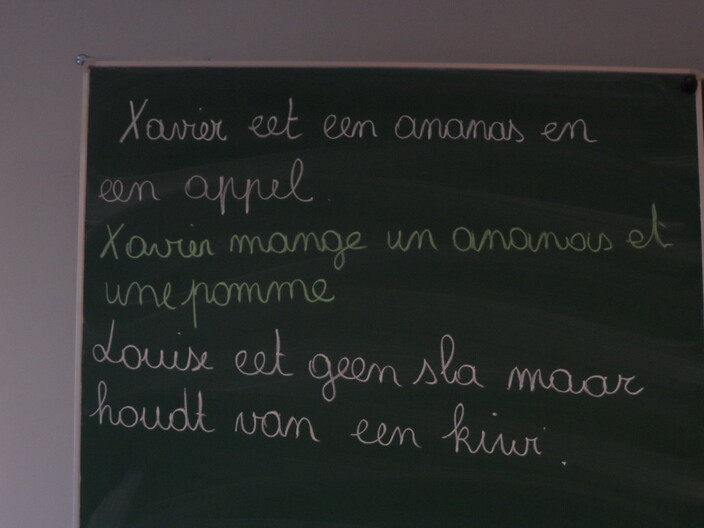 Xavier eet een ananas en
een appel.
Xavier mange un ananas et
une pomme
Louise eet geen sla maar
houdt van een kiwi.